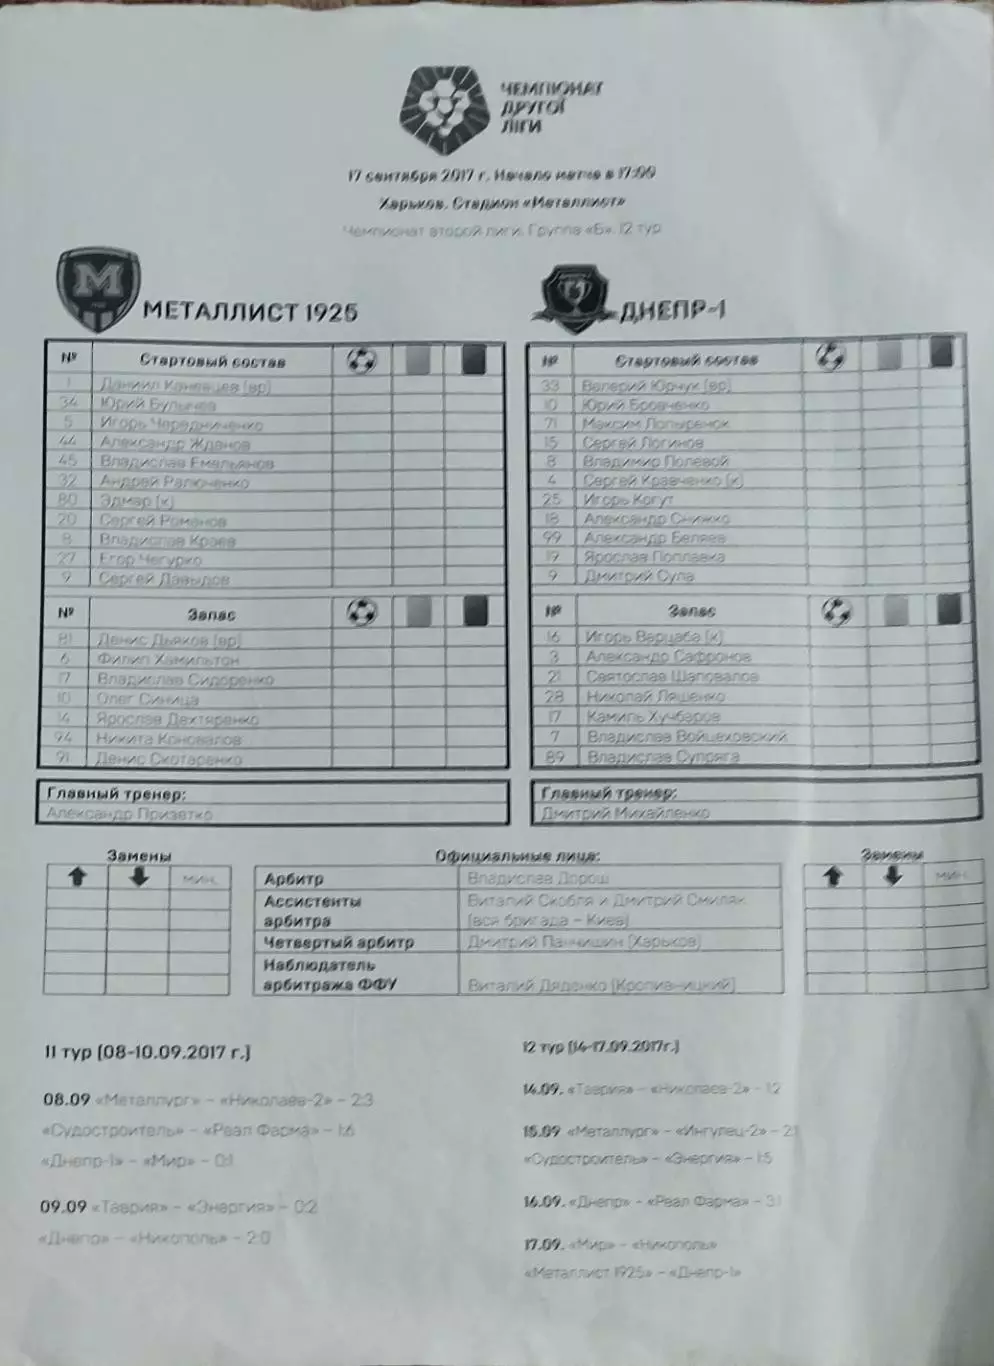 ЧЕМПІОНАТ
ДРУГОЇ
ЛІГИ
17 сентября 2017 г. Начало матча в 17:00
Харьков. Стадион «Металлист»
Чемпионат второй лиги. Группа «Б». 12 тур
МЕТАЛЛИСТ 1925
№ Стартовый состав
1 Даниил Каневцев (вр)
34 Юрий Булычев
5 Игорь Чередниченко
44 Александр Жданов
45 Владислав Емельянов
32 Андрей Ралюченко
80 Эдмар (к)
20 Сергей Романов
8 Владислав Краев
27 Егор Чегурко
9 Сергей Давыдов
№ Запас
81 Денис Дьяков (вр)
6 Филип Хамильтон
17 Владислав Сидоренко
10 Олег Синица
14 Ярослав Дехтяренко
94 Никита Коновалов
91 Денис Скотаренко
Главный тренер:
Александр Призетко
ДНЕПР-1
№ Стартовый состав
33 Валерий Юрчук (вр)
10 Юрий Бровченко
71 Максим Лопыренок
15 Сергей Логинов
8 Владимир Полевой
4 Сергей Кравченко (к)
25 Игорь Когут
18 Александр Снижко
99 Александр Беляев
19 Ярослав Поплавка
9 Дмитрий Сула
№ Запас
16 Игорь Варцаба (к)
3 Александр Сафронов
21 Святослав Шаповалов
28 Николай Ляшенко
17 Камиль Хучбаров
7 Владислав Войцеховский
89 Владислав Супряга
Главный тренер:
Дмитрий Михайленко
Замены
мин.
Официальные лица:
Арбитр Владислав Дорош
Ассистенты арбитра Виталий Скобля и Дмитрий Смиляк
(вся бригада - Киев)
Четвертый арбитр Дмитрий Панчишин (Харьков)
Наблюдатель
арбитража ФФУ Виталий Дяденко (Кропивницкий)
Замены
мин.
11 тур (08-10.09.2017 г.)
08.09 «Металлург» - «Николаев-2» - 2:3
«Судостроитель» - «Реал Фарма» - 1:6
«Днепр-1» - «Мир» - 0:1
09.09 «Таврия» - «Энергия» - 0:2
«Днепр» - «Никополь» - 2:0
12 тур (14-17.09.2017г.)
14.09. «Таврия» - «Николаев-2» - 1:2
15.09 «Металлург» - «Ингулец-2» - 2:1
«Судостроитель» - «Энергия» - 1:5
16.09. «Днепр» - «Реал Фарма» - 3:1
17.09. «Мир» - «Никополь»
«Металлист 1925» - «Днепр-1»